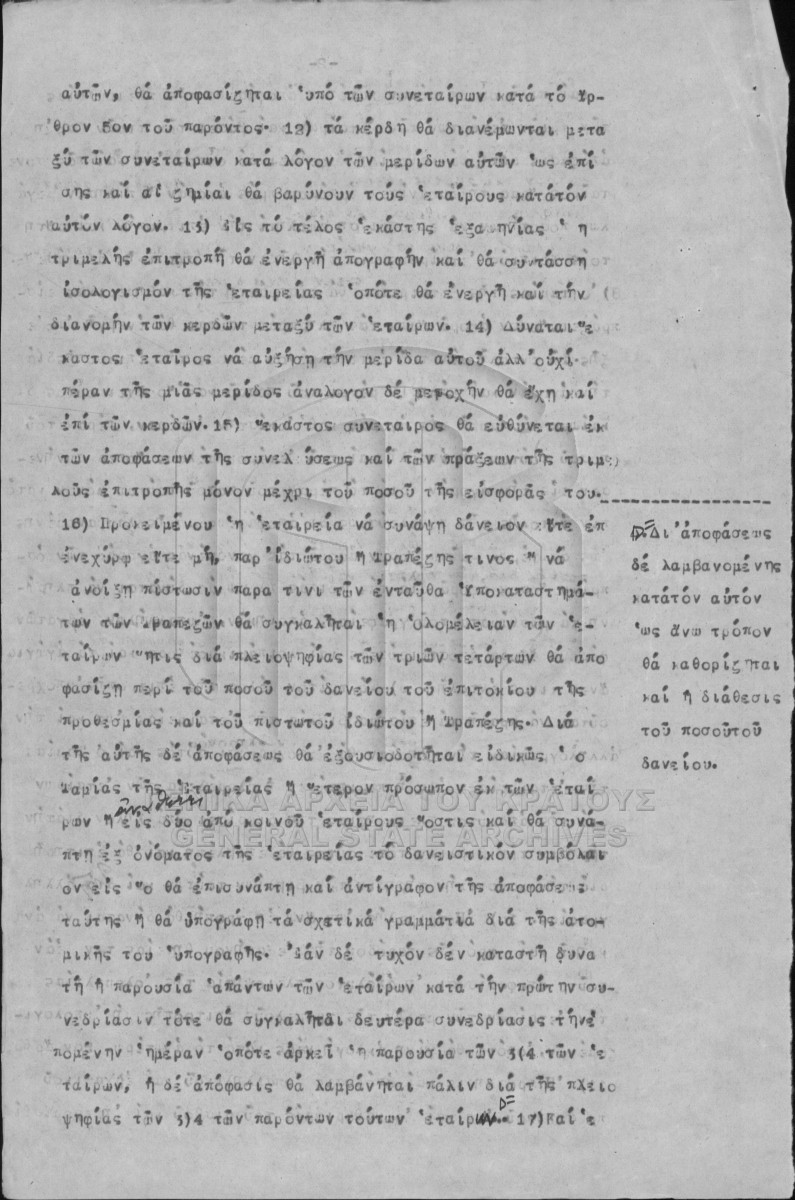 -2-
αὐτῶν, θά ἀποφασίζηται ὑπό τῶν συνεταίρων κατά τό ἄρ-
θρον 5ον τοῦ παρόντος. 12) τά κέρδη θά διανέμωνται μετα
ξύ τῶν συνεταίρων κατά λόγον τῶν μερίδων αὐτῶν ὡς ἐπί
σης καί αἱ ζημίαι θά βαρύνουν τούς ἑταίρους κατάτόν
αὐτόν λόγον. 13) Εἰς τό τέλος ἑκάστης ἑξαμηνίας ἡ
τριμελής ἐπιτροπή θά ἐνεργῆ ἀπογραφήν καί θά συντάσση
ἰσολογισμόν τῆς ἑταιρείας ὁπότε θά ἐνεργῆ καί τήν
διανομήν τῶν κερδῶν μεταξύ τῶν ἑταίρων. 14) Δύναται ἕ
καστος ἑταῖρος νά αὐξήση τήν μερίδα αὐτοῦ ἀλλ'οὐχί
πέραν τῆς μιᾶς μερίδος ἀνάλογον δέ μετοχήν θά ἔχη καί
ἐπί τῶν κερδῶν.15) ἕκαστος συνεταῖρος θά εὐθύνεται ἐκ
τῶν ἀποφάσεων τῆς συνελεύσεως καί τῶν πράξεων τῆς τριμε
λοῦς ἐπιτροπῆς μόνον μέχρι τοῦ ποσοῦ τῆς εἰσφορᾶς του.
16) Προκειμένου ἡ ἑταιρεία νά συνάψη δάνειον εἴτε ἐπ
ἐνεχύρῳ εἴτε μή, παρ ἰδιώτου ἤ Τραπέζης τινος ἤ νά
ἀνοίξη πίστωσιν παρα τινι τῶν ἐνταῦθα Ὑποκαταστημά-
των τῶν Τραπεζῶν θά συγκαλῆται ἡ ὁλομέλειαν τῶν ἑ-
ταίρων ἥτις διά πλειοψηφίας τῶν τριῶν τετάρτων θά ἀπο
φασίζη περί τοῦ ποσοῦ τοῦ δανείου τοῦ ἐπιτοκίου τῆς
προθεσμίας καί τοῦ πιστωτοῦ ἰδιώτου ἤ Τραπέζης. Διά
τῆς αὐτῆς δέ ἀποφάσεως θά ἐξουσιοδοτῆται εἰδικῶς ὁ
Ταμίας τῆς Ἑταιρείας ἤ ἕτερον πρόσωπον ἐκ τῶν ἑταί
ρων ἤ εἰς δύο ἀπό κοινοῦ ἑταίρους ὅστις καί θά συνά-
πτη ἐξ ὀνόματος τῆς ἑταιρείας τό δανειστικόν συμβόλαι
ον εἰς ὅ θά ἐπισυνάπτη καί ἀντίγραφον τῆς ἀποφάσεως
ταύτης ἤ θά ὑπογράφη τά σχετικά γραμμάτια διά τῆς ἀτο-
μικῆς του ὑπογραφῆς. Ἐάν δέ τυχόν δέν καταστῆ δυνα
τή ἡ παρουσία ἁπάντων τῶν ἑταίρων κατά τήν πρώτην συ-
νεδρίασιν τότε θά συγκαλῆται δευτέρα συνεδρίασις τήνἑ
πομένην ἡμέραν ὁπότε ἀρκεῖ ἡ παρουσία τῶν 3(4 τῶν ἑ
ταίρων, ἡ δέ ἀπόφασις θά λαμβάνηται πάλιν διά τῆς πλειο
ψηφίας τῶν 3)4 τῶν παρόντων τούτων ἑταίρων. 17)Καί ἑ
Δι ἀποφάσεως
δέ λαμβανομένης
κατάτόν αὐτόν
ὡς ἄνω τρόπον
θά καθορίζηται
καί ἡ διάθεσις
τοῦ ποσοῦτοῦ
δανείου.
ΓΕΝΙΚΑ ΑΡΧΕΙΑ ΤΟΥ ΚΡΑΤΟΥΣ
GENERAL STATE ARCHIVES